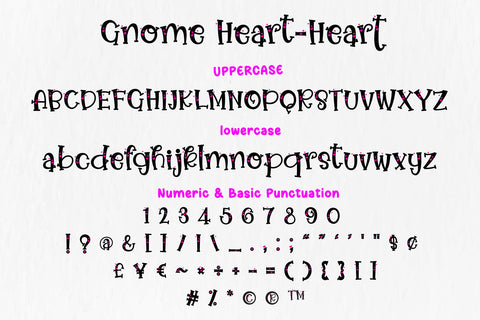 Gnome Heart-Heart
UPPERCASE
ABCDEFGHIJKLMNOPQRSTUVWXYZ
lowercase
abcdefghijklmnopqrstuvwxyz
Numeric & Basic Punctuation
1 2 3 4 5 6 7 8 9 0
! ? @ & [ ] / | \ _ . , : ; “ ” ‘ ’ ' " $ ¢
£ ¥ € ~ × ÷ + - = ( ) { } [ ]
# % * © ® ™